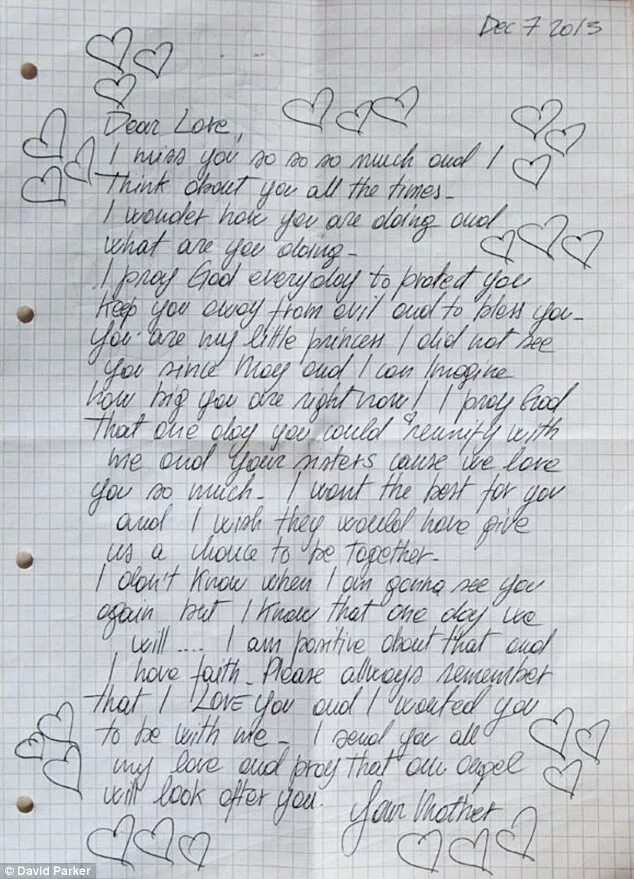 Dec 7 2013
Dear Love,
I miss you so so so much and I
Think about you all the times_
I wonder how you are doing and
what are you doing_
I pray God everyday to protect you
Keep you away from evil and to bless you_
You are my little princess I did not see
you since May and I can Imagine
how big you are right now! I pray God
that one day you could reunify with
me and your sisters cause we love
you so much_ I want the best for you
and I wish they would have give
us a chance to be together_
I don't know when I am gonna see you
again but I know that one day we
will .... I am positive about that and
I have faith_ Please allways remember
that I LOVE you and I wanted you
to be with me_ I send you all
my love and pray that our angel
will look after you. Your Mother
© David Parker